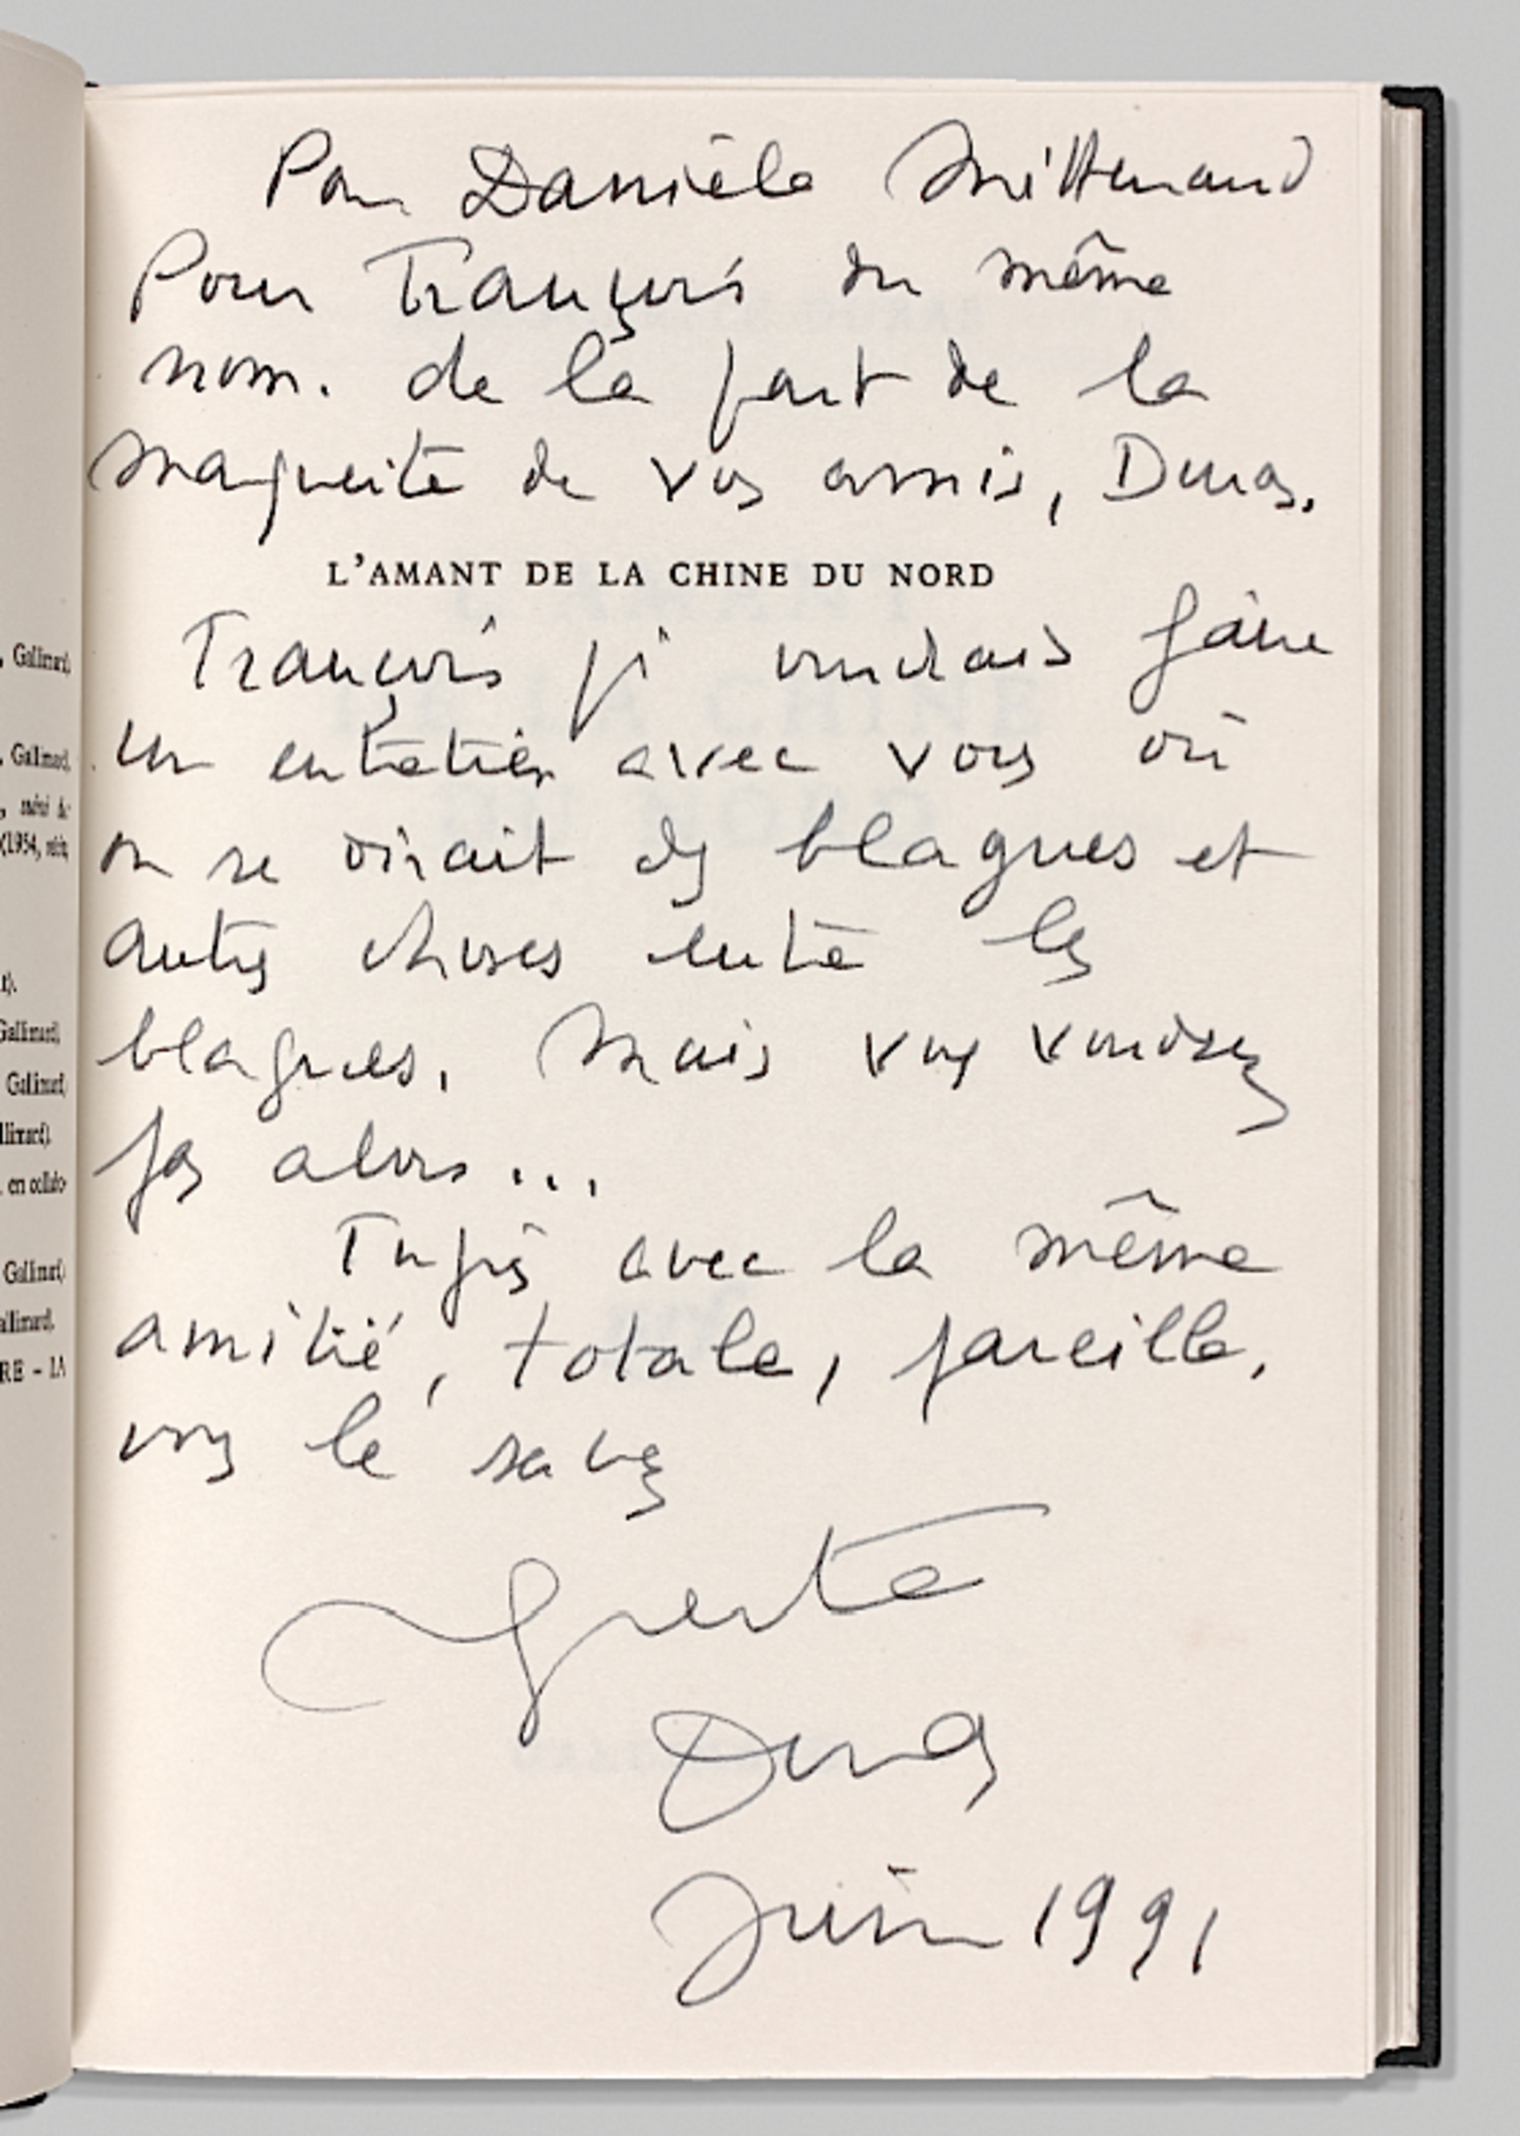 Pour Danièle Mitterrand
Pour François du même
nom. de la part de la
marguerite de vos amis, Duras.
L'AMANT DE LA CHINE DU NORD
François je voudrais faire
un entretien avec vous où
on se dirait des blagues et
autres choses entre les
blagues. Mais vous voudrez
pas alors...
Toujours avec la même
amitié, totale, pareille.
vous le savez
Marguerite
Duras
Juin 1991
. Gallimard,
. Gallimard,
, suivi de
(1954, réédi,
t).
Gallimard,
Gallimard,
llimard).
en collabo-
Gallimard,
allimard,
RE – LA